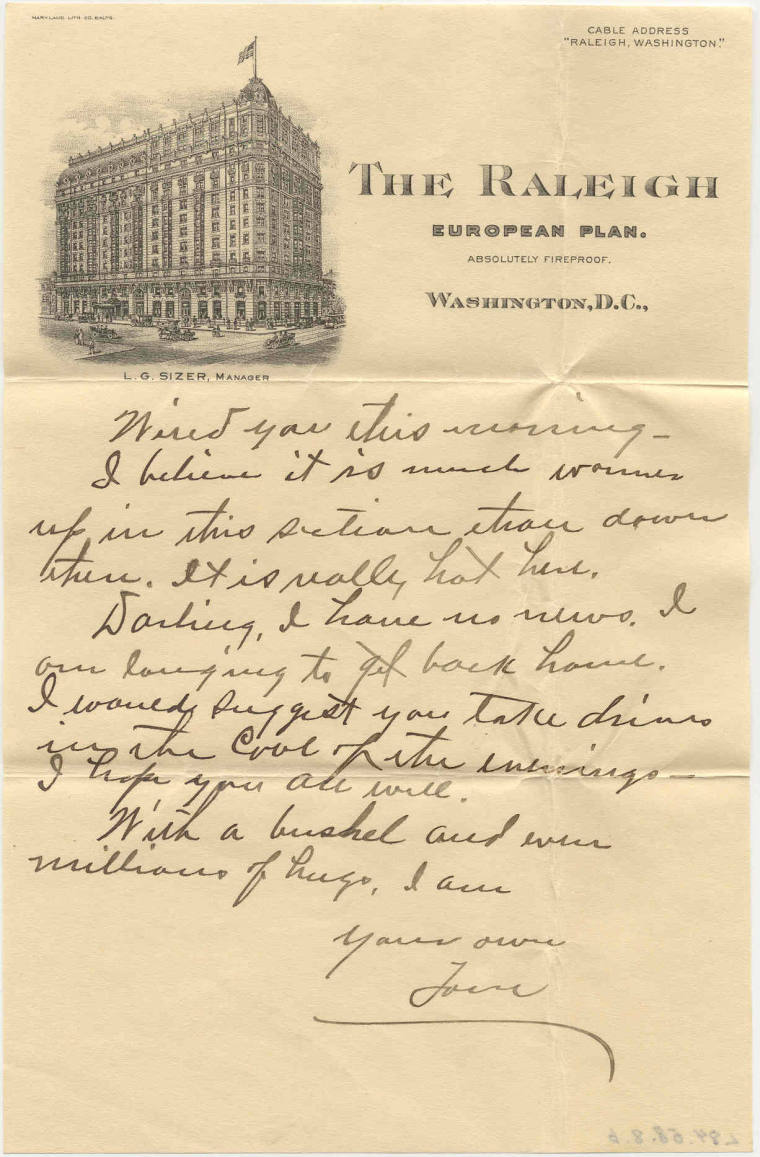 MARYLAND LITH. CO. BALTO.
CABLE ADDRESS
"RALEIGH, WASHINGTON."
THE RALEIGH
EUROPEAN PLAN.
ABSOLUTELY FIREPROOF.
WASHINGTON, D.C.,
L. G. SIZER, MANAGER
Wired you this morning –
I believe it is much warmer
up in this section than down
there. It is really hot here.
Darling, I have no news. I
am longing to get back home.
I would suggest you take drives
in the cool of the evenings –
I hope you all well.
With a bushel and even
millions of hugs, I am
Your own
L94.68.8.6